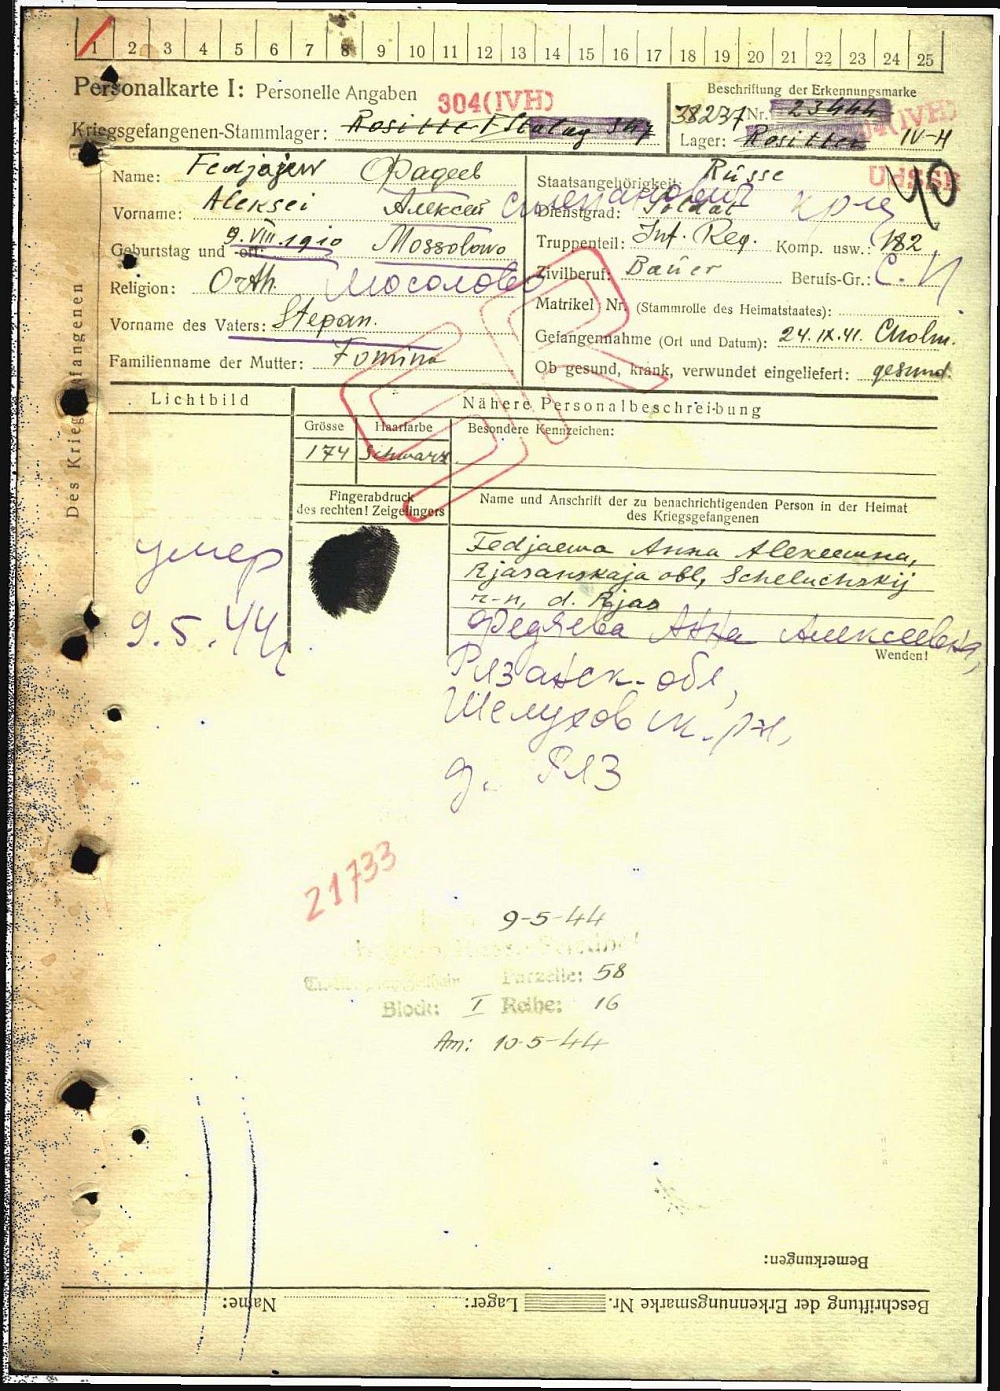 1 2 3 4 5 6 7 8 9 10 11 12 13 14 15 16 17 18 19 20 21 22 23 24 25
Personalkarte I: Personelle Angaben
304(IVH)
Kriegsgefangenen-Stammlager: Rositten Stalag 347
Beschriftung der Erkennungsmarke
38237 Nr. 23444
Lager: Rositten IV-H
Des Kriegsgefangenen
Name: Fedjajew Фадеев
Vorname: Aleksei Алексей Степанович
Geburtstag und -ort: 9.VIII.1910 Mossolowo
Religion: Orth. Мосолово
Vorname des Vaters: Stepan.
Familienname der Mutter: Fomina
Staatsangehörigkeit: Russe
Dienstgrad: Soldat
Truppenteil: Inf. Reg. Komp. usw.: 182
Zivilberuf: Bauer Berufs-Gr.:
Matrikel Nr. (Stammrolle des Heimatstaates):
Gefangennahme (Ort und Datum): 24.IX.41. Cholm.
Ob gesund, krank, verwundet eingeliefert: gesund.
Lichtbild
Nähere Personalbeschreibung
Grösse Haarfarbe Besondere Kennzeichen:
174 Schwarz
Fingerabdruck
des rechten! Zeigefingers
Name und Anschrift der zu benachrichtigenden Person in der Heimat
des Kriegsgefangenen
Fedjaewa Anna Alexeewna,
Rjasanskaja obl, Scheluchskij
r-n, d. Rjas
Федяева Анна Алексеевна,
Wenden!
Рязанск. обл,
Шелуховск. рн,
д. Ряз
умер
9.5.44
21733
9-5-44
Parzelle: 58
Block: I Reihe: 16
Am: 10-5-44
Bemerkungen:
Beschriftung der Erkennungsmarke Nr. Lager: Name: